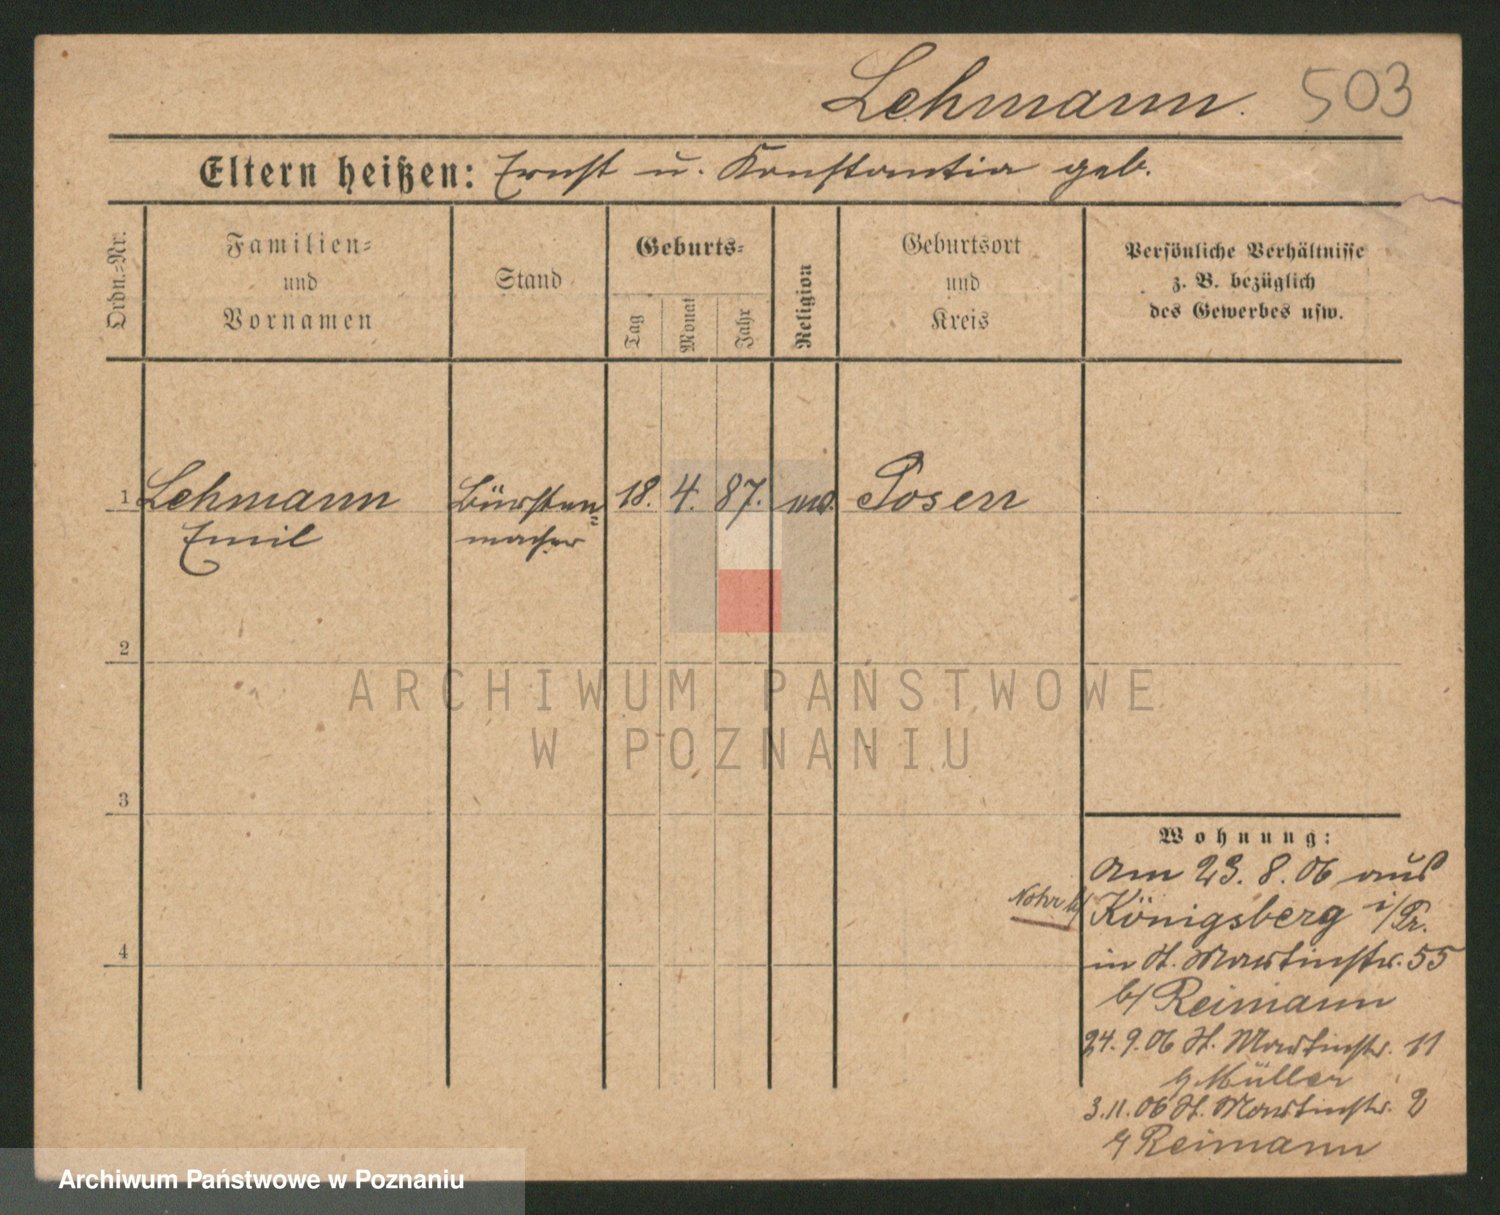 Lehmann. 503
Eltern heißen: Ernst u. Konstantia geb.
Ordn.-Nr.
Familien-
und
Vornamen
Stand
Geburts-
Tag
Monat
Jahr
Religion
Geburtsort
und
Kreis
Persönliche Verhältnisse
z. B. bezüglich
des Gewerbes usw.
1 Lehmann Bürsten= 18. 4. 87. Posen
Emil macher
2
ARCHIWUM PAŃSTWOWE
W POZNANIU
3
Wohnung:
Am 23. 8. 06 aus
Königsberg i/Pr.
4
in St. Martinstr. 55
b/ Reimann
24. 9. 06 St. Martinstr. 11
Müller
3. 11. 06 St. Martinstr. 2
Reimann
Archiwum Państwowe w Poznaniu